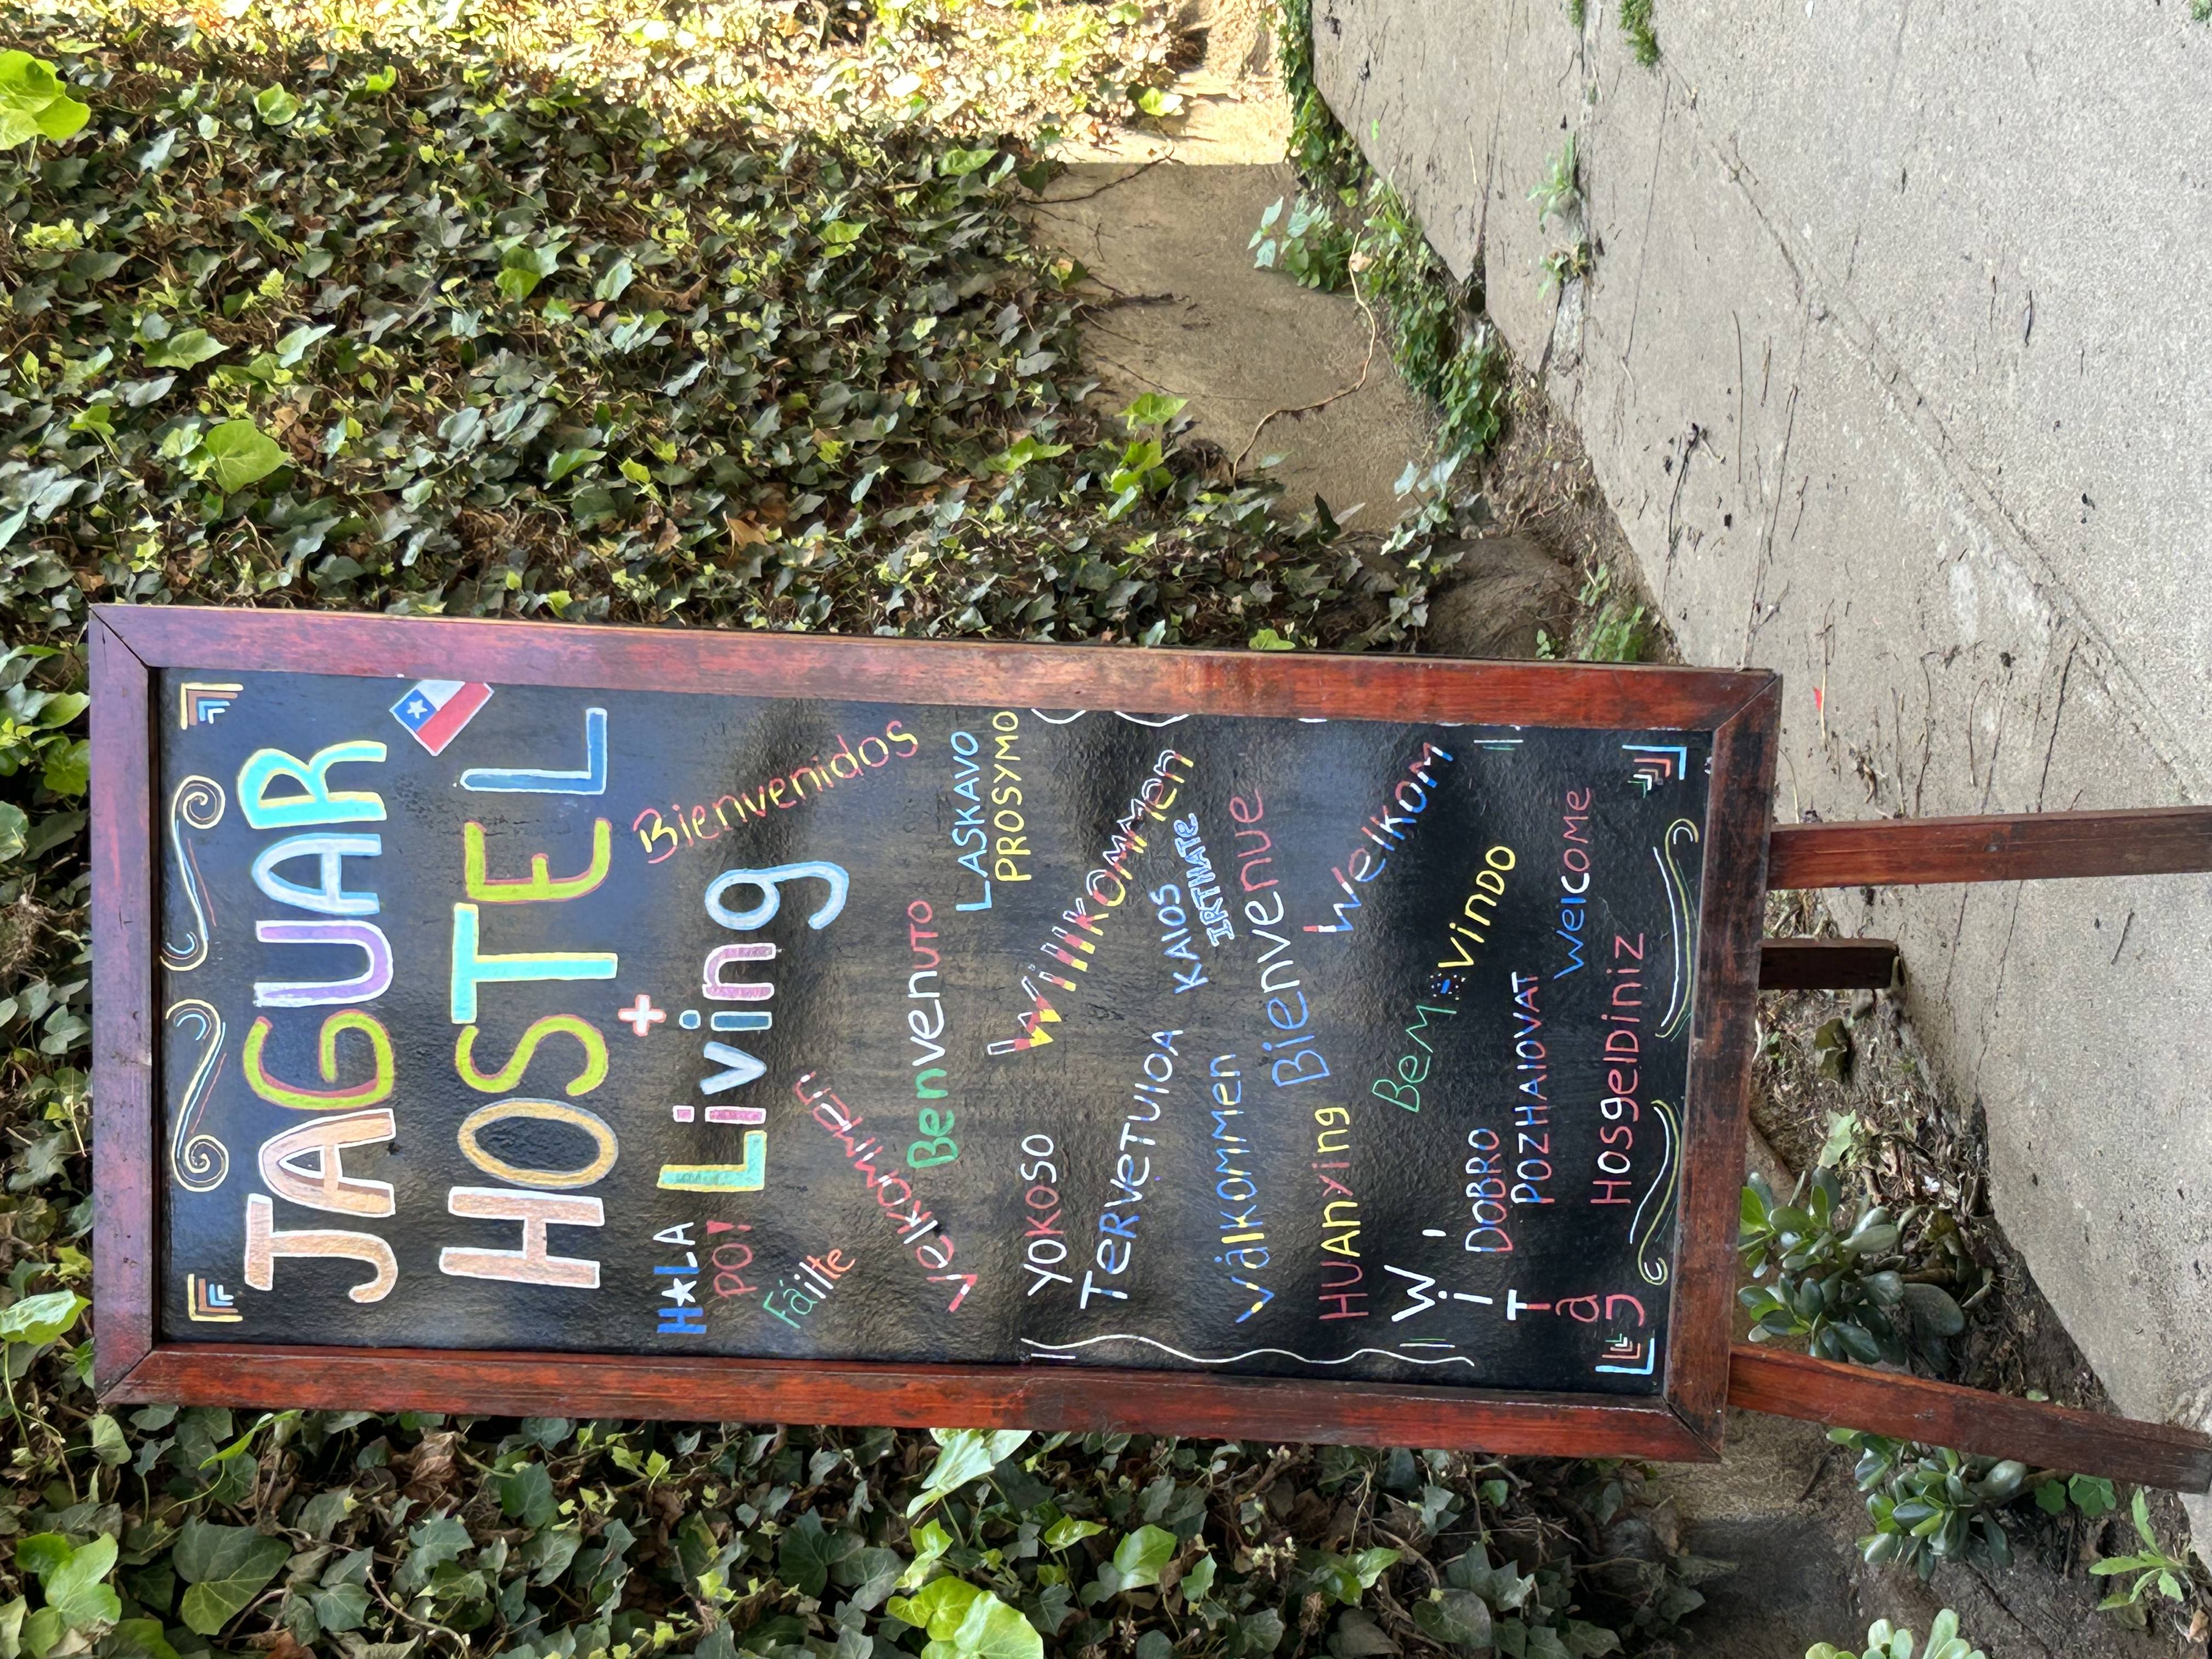 JAGUAR
HOSTEL
+
Living
HOLA
PO!
Bienvenidos
Fáilte
Velkommen
Benvenuto
LASKAVO
PROSYMO
YOKOSO
Willkommen
TerveTuloA
KALOS
IRTHATE
Välkommen
Bienvenue
HUAnying
Welkom
WiTaJ
Bem-vindo
DOBRO
POZHALOVAT
Welcome
Hosgeldiniz